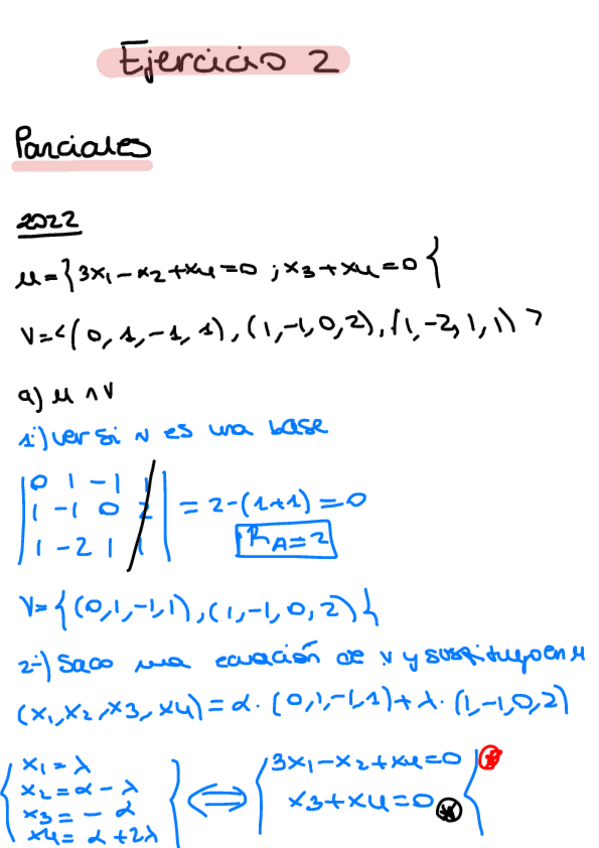 Ejercicio 2
Parciales
2022
u={3x₁-x₂+x₄=0 ; x₃+x₄=0}
V=<(0,1,-1,1),(1,-1,0,2),(1,-2,1,1)>
a) u ∩ V
1º) ver si v es una base
|0 1 -1 1|
|1 -1 0 2| = 2-(1+1)=0
|1 -2 1 1| RA=2
V={(0,1,-1,1),(1,-1,0,2)}
2º) Saco una ecuación de V y sustituyo en u
(x₁,x₂,x₃,x₄)=α·(0,1,-1,1)+λ·(1,-1,0,2)
{x₁=λ
x₂=α-λ
x₃=-α
x₄=α+2λ} ⟺ {3x₁-x₂+x₄=0 *
x₃+x₄=0 *}